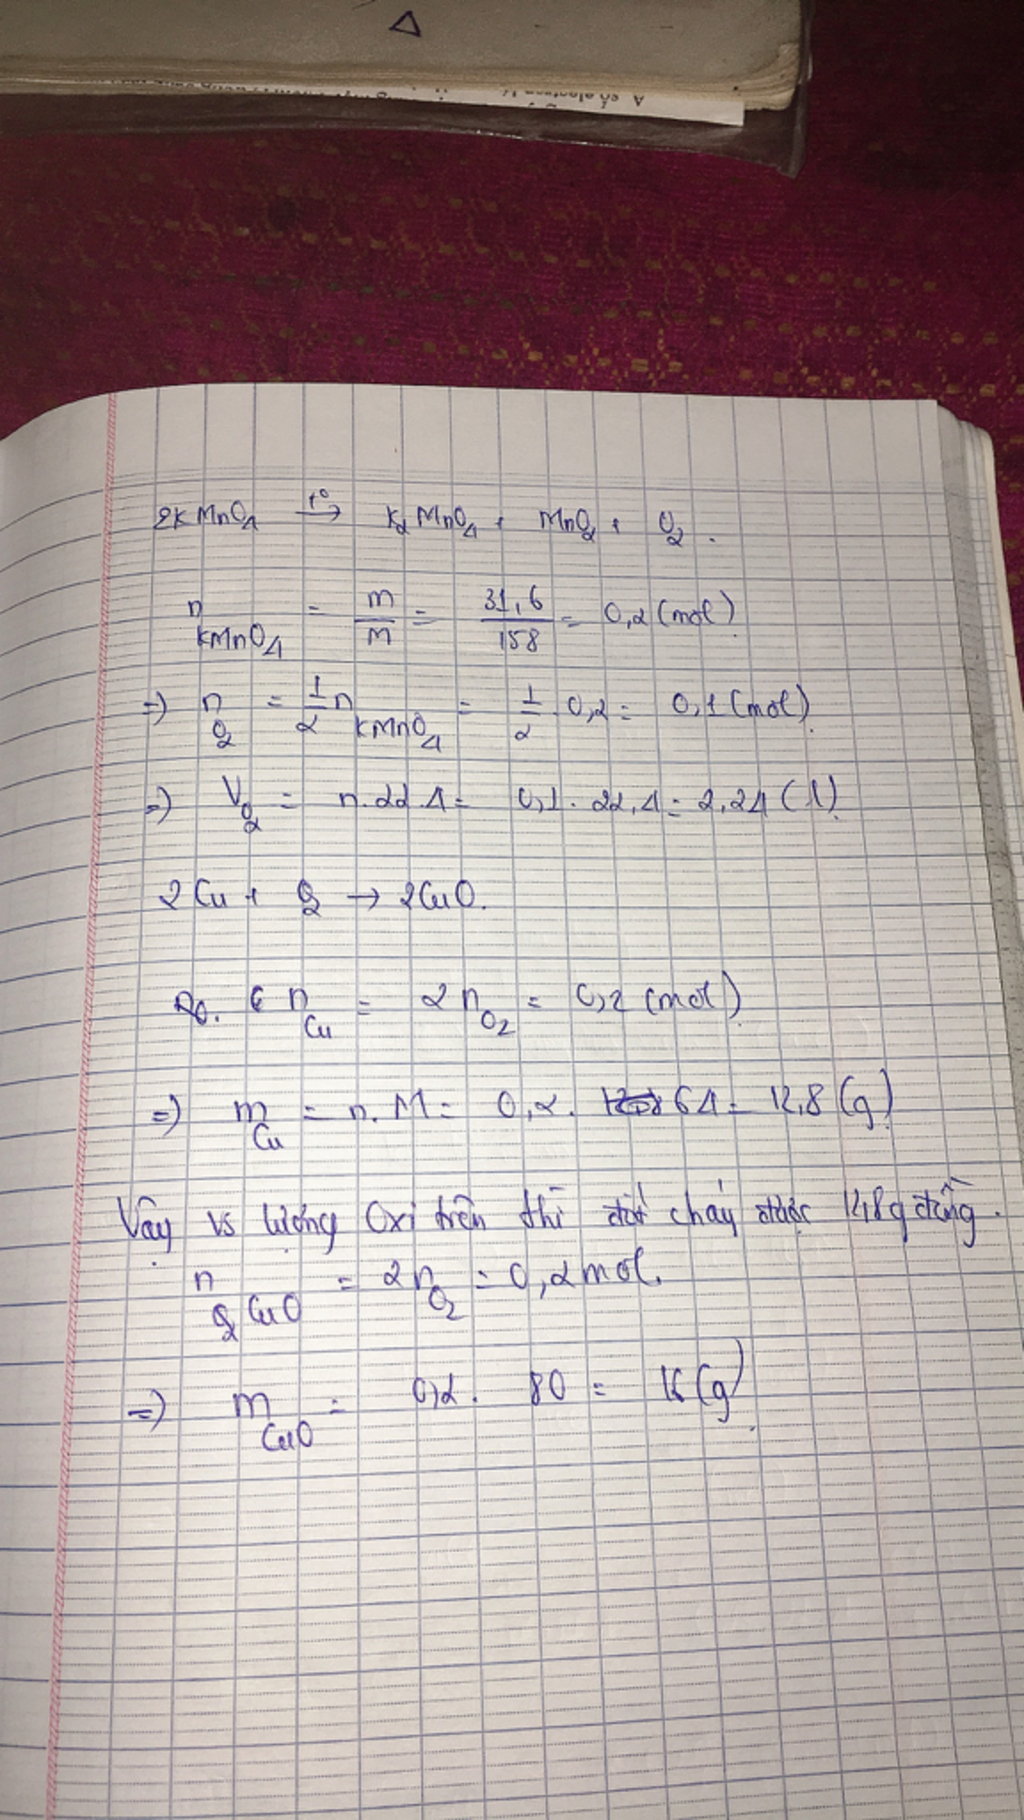 2KMnO4 t° → K2MnO4 + MnO2 + O2.
n KMnO4 = m/M = 31,6/158 = 0,2 (mol)
=> n O2 = 1/2 n KMnO4 = 1/2 . 0,2 = 0,1 (mol)
=> V O2 = n.22.4 = 0,1 . 22,4 = 2,24 (l)
2Cu + O2 → 2CuO.
n Cu = 2 n O2 = 0,2 (mol)
=> m Cu = n. M = 0,2. 64 = 12,8 (g)
Vậy vs lượng Oxi trên thì đốt cháy được 12,8g đồng.
n CuO = 2n O2 = 0,2 mol.
=> m CuO = 0,2 . 80 = 16 (g)